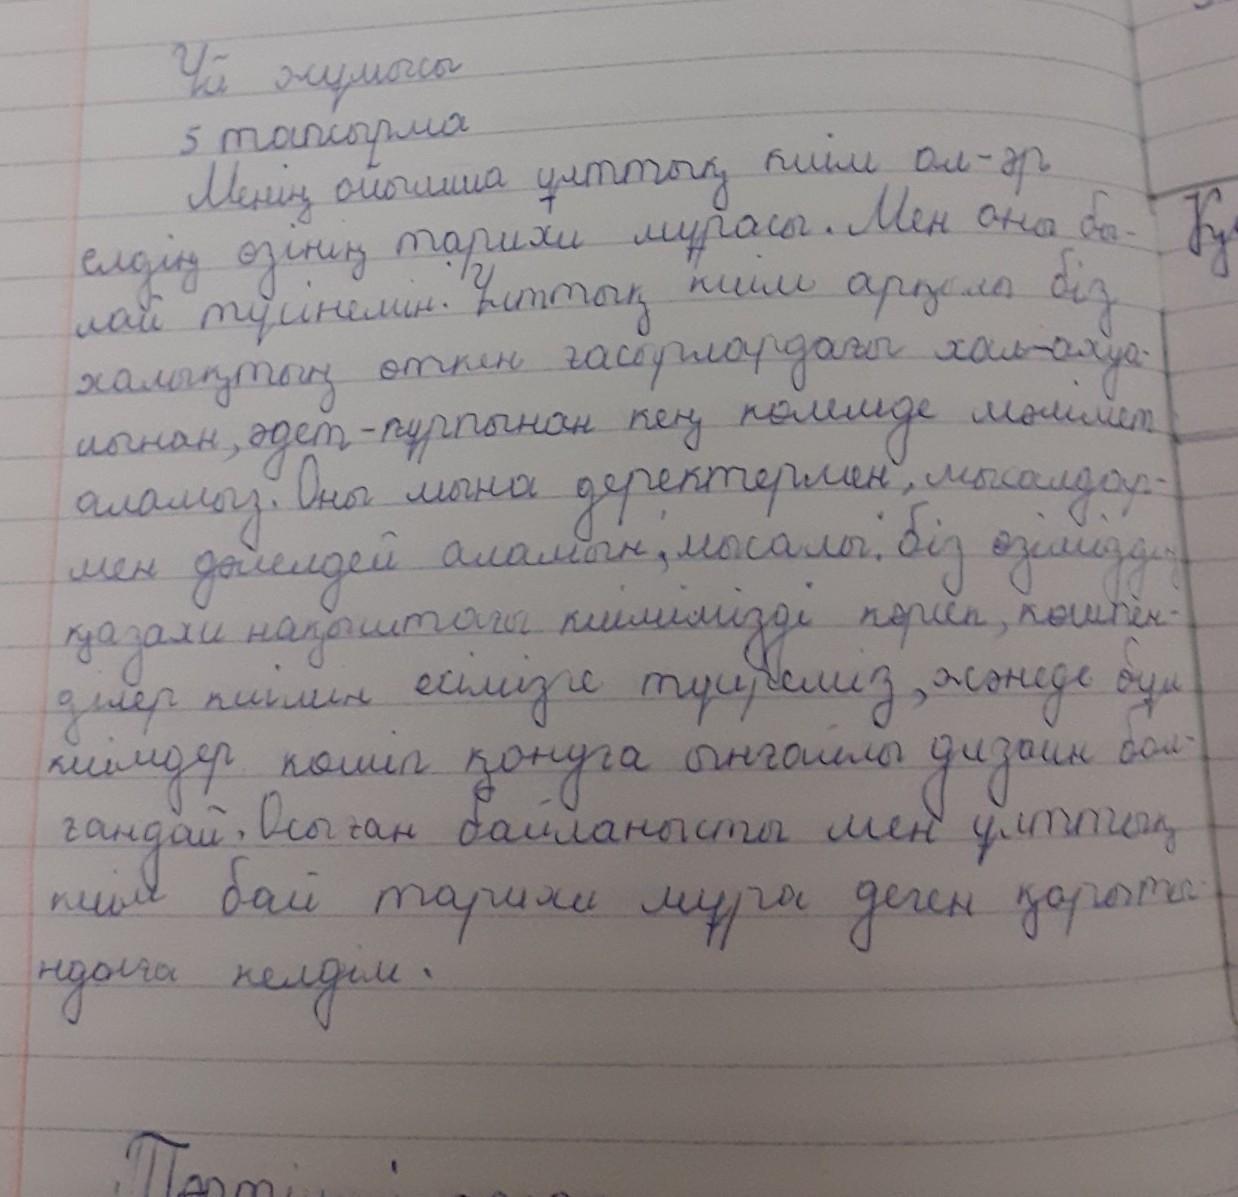 Үй жұмысы
5 тапсырма
Менің ойымша ұлттық киім ол-әр
елдің өзінің тарихи мұрасы. Мен оны бы-
лай түсінемін. Ұлттық киім арқылы біз
халықтың өткен ғасырлардағы хал-ахуа-
лынан, әдет-ғұрпынан кең көлемде мәлімет
аламыз. Оны мына деректермен, мысалдар-
мен дәлелдей аламын, мысалы: біз өзіміздің
қазахи нақыштағы киімімізді көріп, көшпен-
ділер киімін есімізге түсіреміз, жәнеде бұл
киімдер көшіп қонуға ынғайлы дизайн бол-
ғандай. Осыған байланысты мен ұлттық
киім бай тарихи мұра деген қорыты-
ндыға келдім.